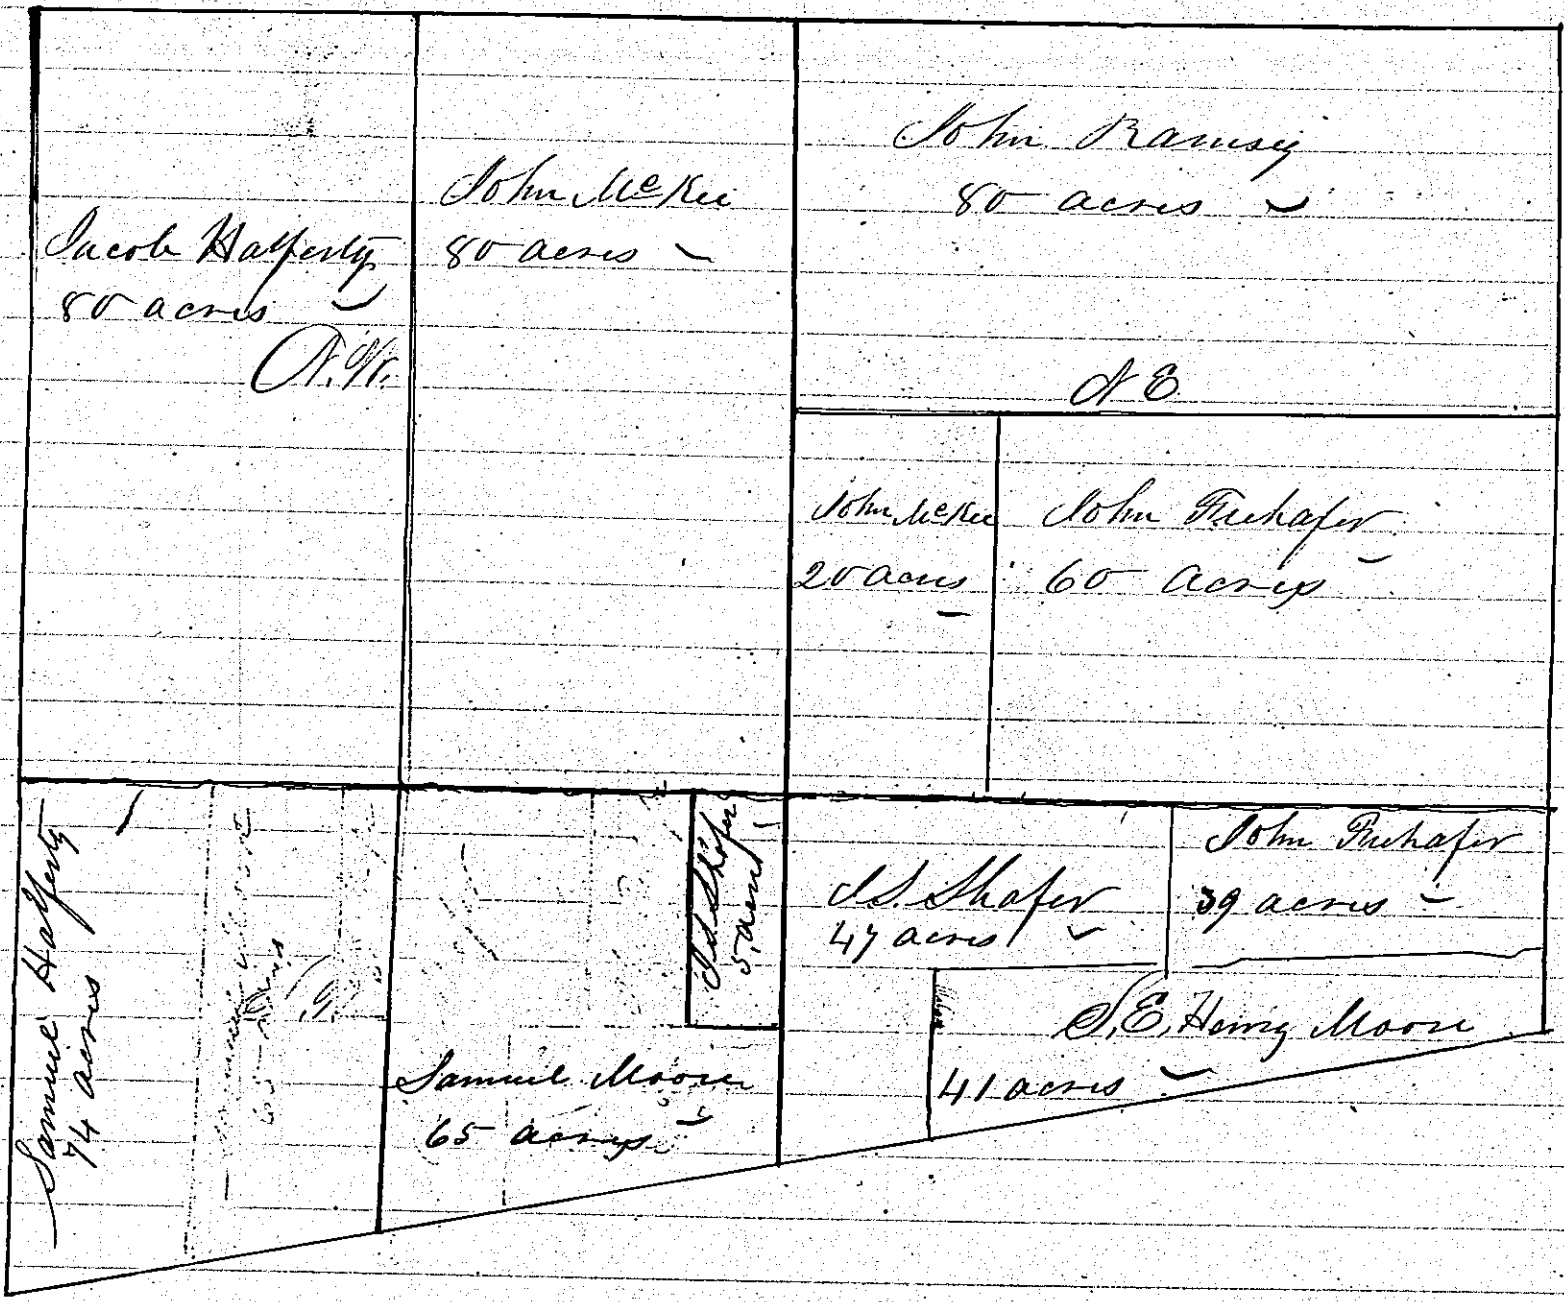 Jacob Halferty
80 acres
N.W.
John McKee
80 acres
John Ramsey
80 acres
N E
John McKee
20 acres
John Freehafer
60 acres
Samuel Halferty
74 acres
J S Shafer
5 acres
Samuel Moore
65 acres
J S. Shafer
47 acres
John Freehafer
39 acres
S.E. Henry Moore
41 acres